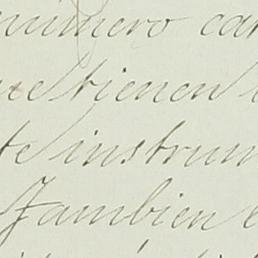 numero car
que tienen
te instrum
Tambien e